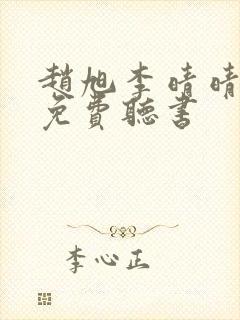 趙旭李晴晴
免費聽書
李心正